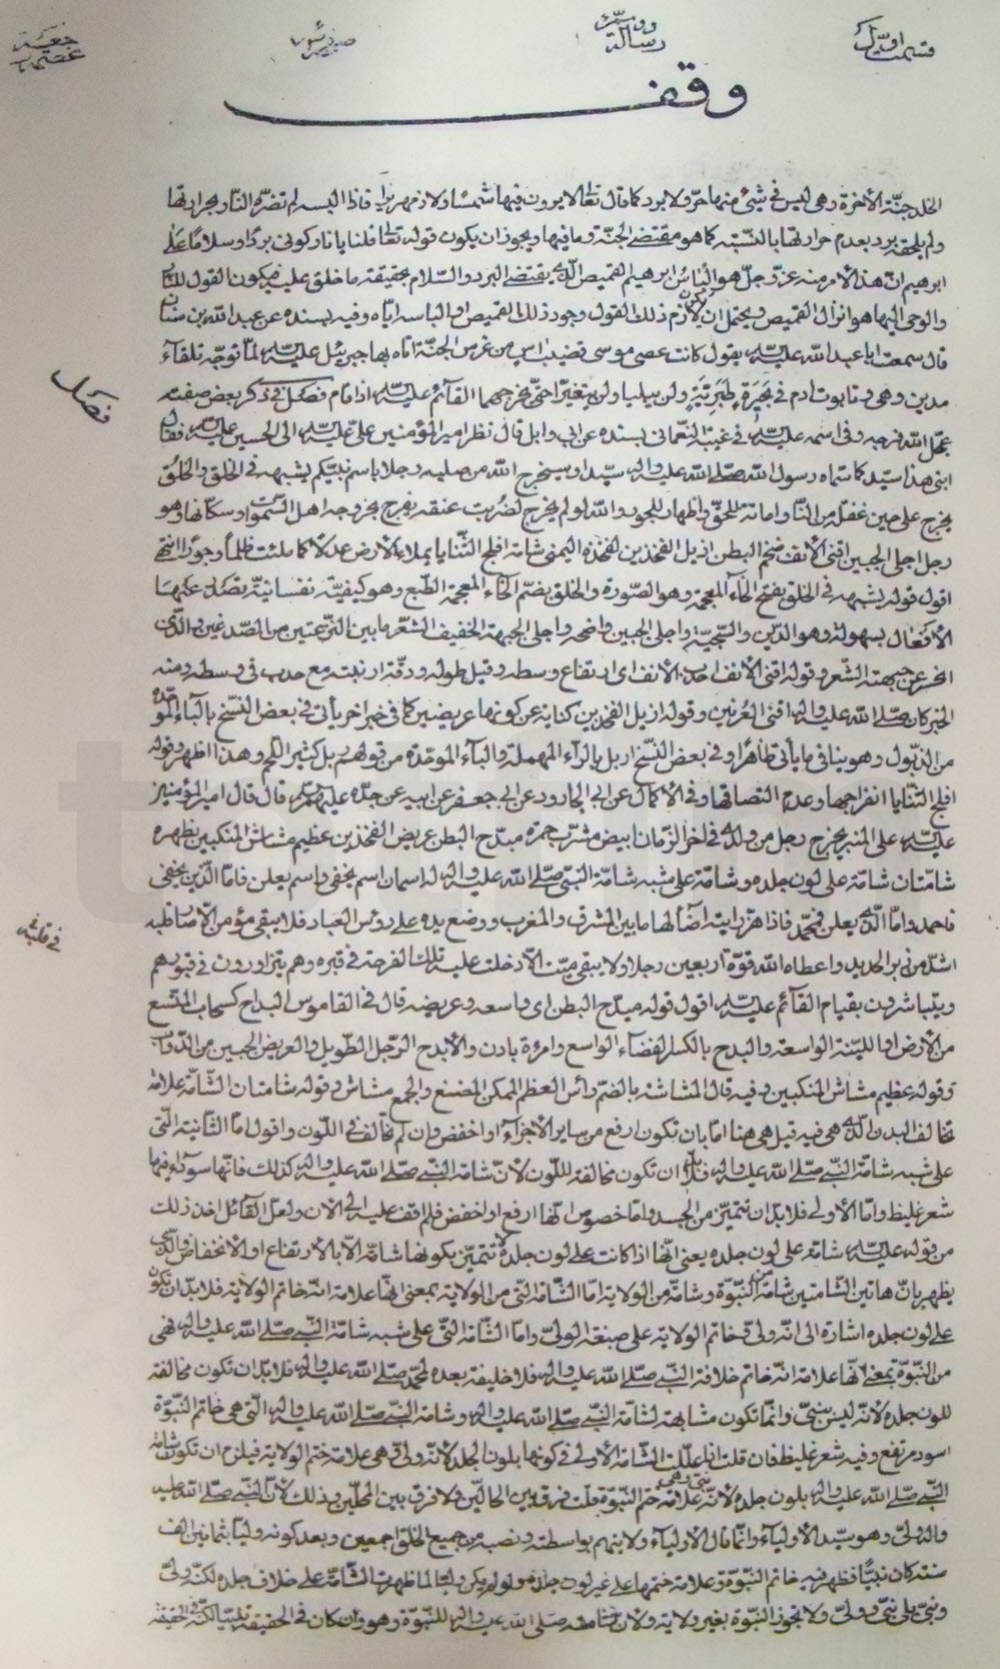 قسمت اوّل
رسالة
وقف
الخلد جنّة الآخرة وهى ليس فى شئ منها حرّ ولا برد كما قال تعا لا يرون فيها شمسًا ولا زمهريرا فاذا البسه لم تضرّه النار بحرارتها
ولم يلحقه برد بعدم حرارتها بالنسبة كما هو مقتضى الجنّة وما فيها ويجوز ان يكون قوله تعا قلنا يا نار كونى بردًا وسلامًا على
ابرهيم انّ هذا الامر منه عزّ وجلّ هو الباس ابرهيم القميص الّذى يقتضى البرد والسّلام بحقيقة ما خلق عليه فيكون القول للنار
والوحى اليها هو انزال القميص ويحتمل ان يكون لازم ذلك القول وجود ذلك القميص او الباسه ايّاه وفيه بسنده عن عبد الله بن سنان
قال سمعت ابا عبد الله عليه السلام يقول كانت عصى موسى قضيب آس من غرس الجنّة اتاه بها جبرئيل عليه السلام لمّا توجّه تلقآء
مدين وهى وتابوت ادم فى بحيرة طبريّة ولن يبليا ولن يتغيّرا حتّى يخرجهما القآئم عليه السلام اذا قام فصل فى ذكر بعض صفته
عجّل الله فرجه وفى اسمه عليه السلام فى غيبة النّعمانى بسنده عن ابى وابل قال نظر امير المؤمنين علىّ عليه السلام الى الحسين عليه السلام فقال
ابنى هذا سيّد كما سمّاه رسول الله صلّى الله عليه واله سيّدا وسيخرج الله من صلبه رجلا باسم نبيّكم يشبهه فى الخلق والخُلُق
يخرج على حين غفلة من النّاس واماتة للحقّ واظهار للجور والله لو لم يخرج لضُربت عنقه يفرح بخروجه اهل السّموات وسكّانها وهو
رجل اجلى الجبين اقنى الانف ضخم البطن ازيل الفخذين لفخذه اليمنى شامة افلج الثّنايا يملاء الارض عدلا كما ملئت ظلما وجورًا انتهى
اقول قوله يشبهه فى الخلق بفتح الخآء المعجمة وهو الصّورة والخلق بضمّ الخآء المعجمة الطّبع وهو كيفيّة نفسانيّة تصدر عنها
الافعال بسهولة وهو الدّين والسّجيّة واجلى الجبين واضحه واجلى الجبهة الخفيف الشعر ما بين النّزعتين من الصّدغين والّذى
انحسر عن جبهته الشّعر وقوله اقنى الانف احدب الانف اى ارتفاع وسطه وقيل طوله ودقّة ارنبته مع حدب فى وسطه ومنه
الخبر كان صلّى الله عليه واله اقنى العرنين وقوله ازيل الفخذين كناية عن كونها عريضين كما فى خبر اخر يأتى فى بعض النّسخ بالبآء الموحّدة
من الذّبول وهو ينافى ما يأتى ظاهرا وفى بعض النّسخ اربل بالرآء المهملة والبآء الموحّدة من قولهم ربل كثير اللّحم وهذا اظهر وقوله
افلج الثّنايا انفراجها وعدم التصاقها وفى الاكمال عن ابى الجارود عن ابى جعفر عن ابيه عن جدّه عليهم السلام قال قال امير المؤمنين
عليه السلام على المنبر يخرج رجل من ولدى فى اخر الزّمان ابيض مشرب حمرة مبدّح البطن عريض الفخذين عظيم مشاش المنكبين بظهره
شامتان شامة على لون جلده وشامة على شبه شامة النّبىّ صلّى الله عليه واله له اسمان اسم يخفى واسم يعلن فامّا الّذى يخفى
فاحمد وامّا الّذى يعلن فمحمّد فاذا هزّ رايته اضآء لها ما بين المشرق والمغرب ووضع يده على رؤس العباد فلا يبقى مؤمن الّا صار قلبه
اشدّ من زبر الحديد واعطاه الله قوّة اربعين رجلا ولا يبقى ميّت الّا دخلت عليه تلك الفرحة فى قبره وهم يتزاورون فى قبورهم
ويتباشرون بقيام القآئم عليه السلام اقول قوله مبدّح البطن اى واسعه وعريضه قال فى القاموس البداح كسحاب المتّسع
من الارض او الليّنة الواسعة والبدح بالكسر الفضآء الواسع وامرءة بادن والابدح الرّجل الطّويل والعريض الجبين من الدّواب
وقوله عظيم مشاش المنكبين وفيه قال المشاشة بالضمّ رأس العظم الممكن المضغ والجمع مشاش وقوله شامتان الشّامة علامة
تخالف البدن الّذى هى فيه قيل هى هنا امّا بان تكون ارفع من ساير الاجزآء او اخفض وان لم تخالف فى اللّون واقول امّا الثّانية الّتى
على شبه شامة النّبىّ صلّى الله عليه واله فلا بدّ ان تكون مخالفة للّون لانّ شامة النّبىّ صلّى الله عليه واله كذلك فانّها سودآء فيها
شعر غليظ وامّا الاولى فلا بدّ ان تتميّز من الجسد وامّا خصوص انّها ارفع او اخفض فلم اقف عليه الى الان ولعلّ القآئل اخذ ذلك
من قوله عليه السلام شامة على لون جلده يعنى انّها اذا كانت على لون جلده لا تتميّز بكونها شامة الّا بالارتفاع او الانخفاض والّذى
يظهر بانّ هاتين الشّامتين شامة من النّبوّة وشامة من الولاية امّا الشّامة الّتى من الولاية بمعنى انّها علامة انّه خاتم الولاية فلا بدّ ان تكون
على لون جلده اشارة الى انّه ولىّ وخاتم الولاية على صبغة الولىّ وامّا الشّامة الّتى على شبه شامة النّبىّ صلّى الله عليه واله فهى
من النّبوّة بمعنى انّها علامة انّه خاتم خلافة النّبىّ صلّى الله عليه واله فلا خليفة بعده لمحمّد صلّى الله عليه واله فلا بدّ ان تكون مخالفة
للون جلده لانّه ليس بنبىّ وانّما تكون مشابهة لشامة النّبىّ صلّى الله عليه واله وشامة النّبىّ صلّى الله عليه واله الّتى هى خاتم النّبوّة
اسود مرتفع وفيه شعر غليظ فان قلت انّما علّلت الشّامة الاولى فى كونها بلون الجلد لانّه ولىّ وهى علامة ختم الولاية فيلزم ان تكون شامة
النّبىّ صلّى الله عليه واله بلون جلده لانّه نبىّ وهى علامة ختم النّبوّة قلت فرق بين الحالين ولا فرق بين المحلّين وذلك لانّ النّبىّ صلّى الله عليه
واله ولىّ وهو سيّد الاوليآء وانّما قال الاوليآء ولايتهم بواسطته ونصبه من جميع الخلق اجمعين وبعد كونه وليّا بثمانين الف
سنة كان نبيّا فظهر فيه خاتم النّبوّة وعلامة ختمها على غير لون جلده ولو لم يكن وليّا لما ظهرت الشّامة على خلاف جلده لكنّه ولىّ
ونبىّ بل نبىّ وولىّ ولا تجوز النّبوّة بغير ولاية ولانّ شامته صلّى الله عليه واله للنّبوّة وهو وان كان فى الحقيقة
فصل
فى قلبه